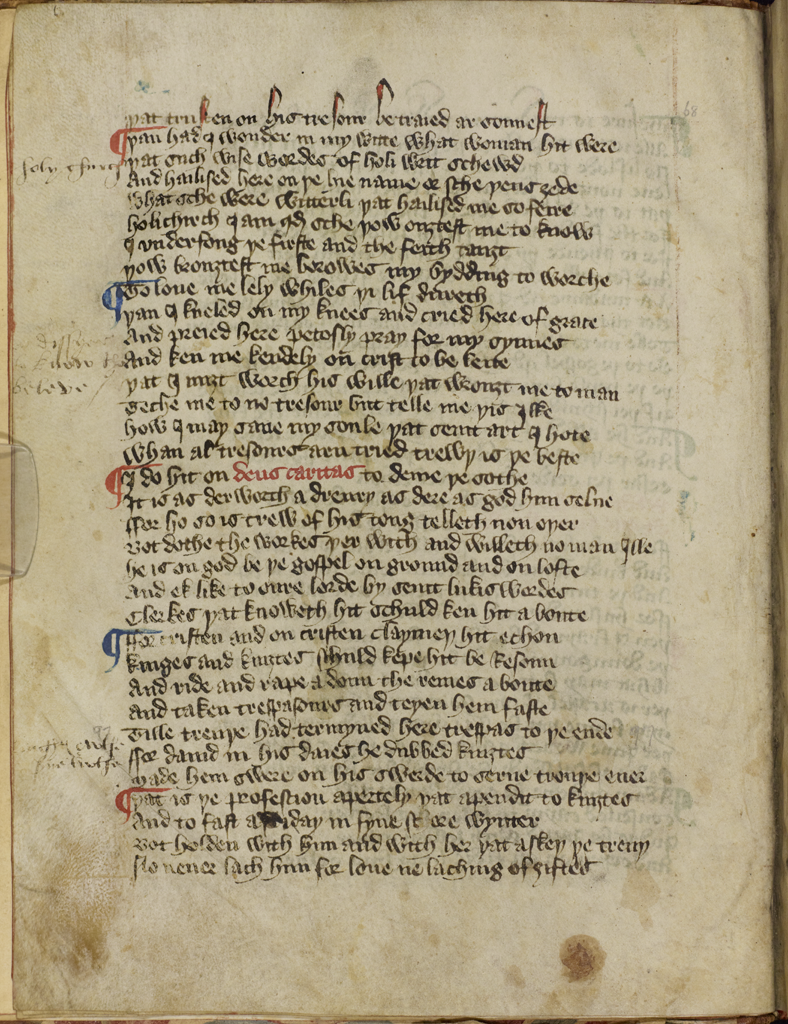 68
þat trusten on his tresour betraied ar sonnest
þan had y wonder in my witte what woman hit were
holy chirch
þat such wise wordes of holi writ schewd
And hailised here on þe hie name or sche þens ȝede
What sche were witterli þat hailised me so feire
holichirch y am qd sche þow oughtest me to know
y vnderfong þe firste and the feith tauȝt
þow brouȝtest me borowes my byddyng to worche
To loue me lely whiles þi lif dureth
þan y kneled on my knees and cried here of grace
And preied here petosly pray for my synnes
And ken me kendely on crist to be leue
beleve
þat y miȝt worch his wille þat wrouȝt me to man
Teche me to no tresour but telle me þis ilke
how y may saue my soule þat seint art y hote
Whan al tresours arn tried trewþ is þe beste
y do hit on deus caritas to deme þe sothe
It is as derworth a drewry as dere as god him selue
ffor ho so is trew of his tong telleth non oþer
Bot dothe the workes þer with and willeth no man ille
he is on god be þe gospel on ground and on lofte
And ek like to oure lorde by seint lukis wordes
Clerkes þat knoweth hit schuld ken hit a boute
ffor cristen and on cristen claymeþ hit echon
kinges and kniȝtes schuld kepe hit be Resoun
And ride and rape a doun the remes a boute
And taken trespasours and teyen hem faste
Tille treuþe had termyned here trespas to þe ende
ffor dauid in his daies he dubbed kniȝtes
Made hem swere on his swerde to serue treuþe euer
þat is þe profession apertely þat apendit to kniȝtes
And to fast a friday in fyue score wynter
Bot holden with him and with her þat asken þe treuþ
No neuer lach him for loue ne laching of ȝiftes